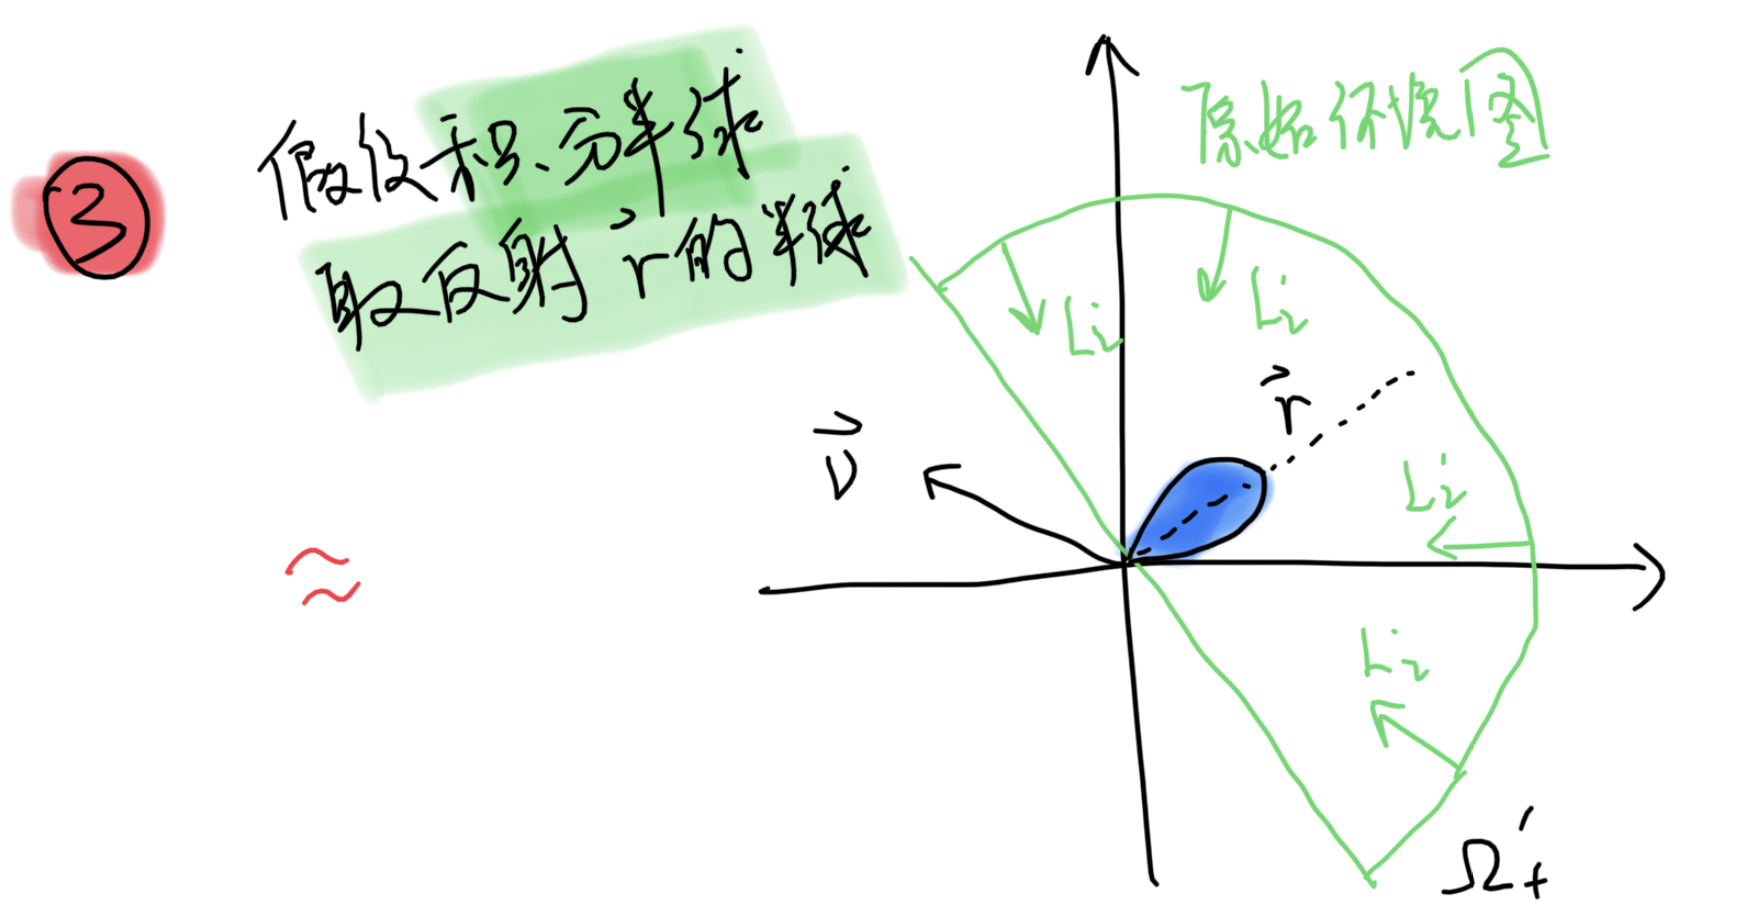 ③ 假设积分半球
取反射 r⃗ 的半球
原始环境图
Li
Li
r⃗
v⃗
Li
≈
Li
Ω'+